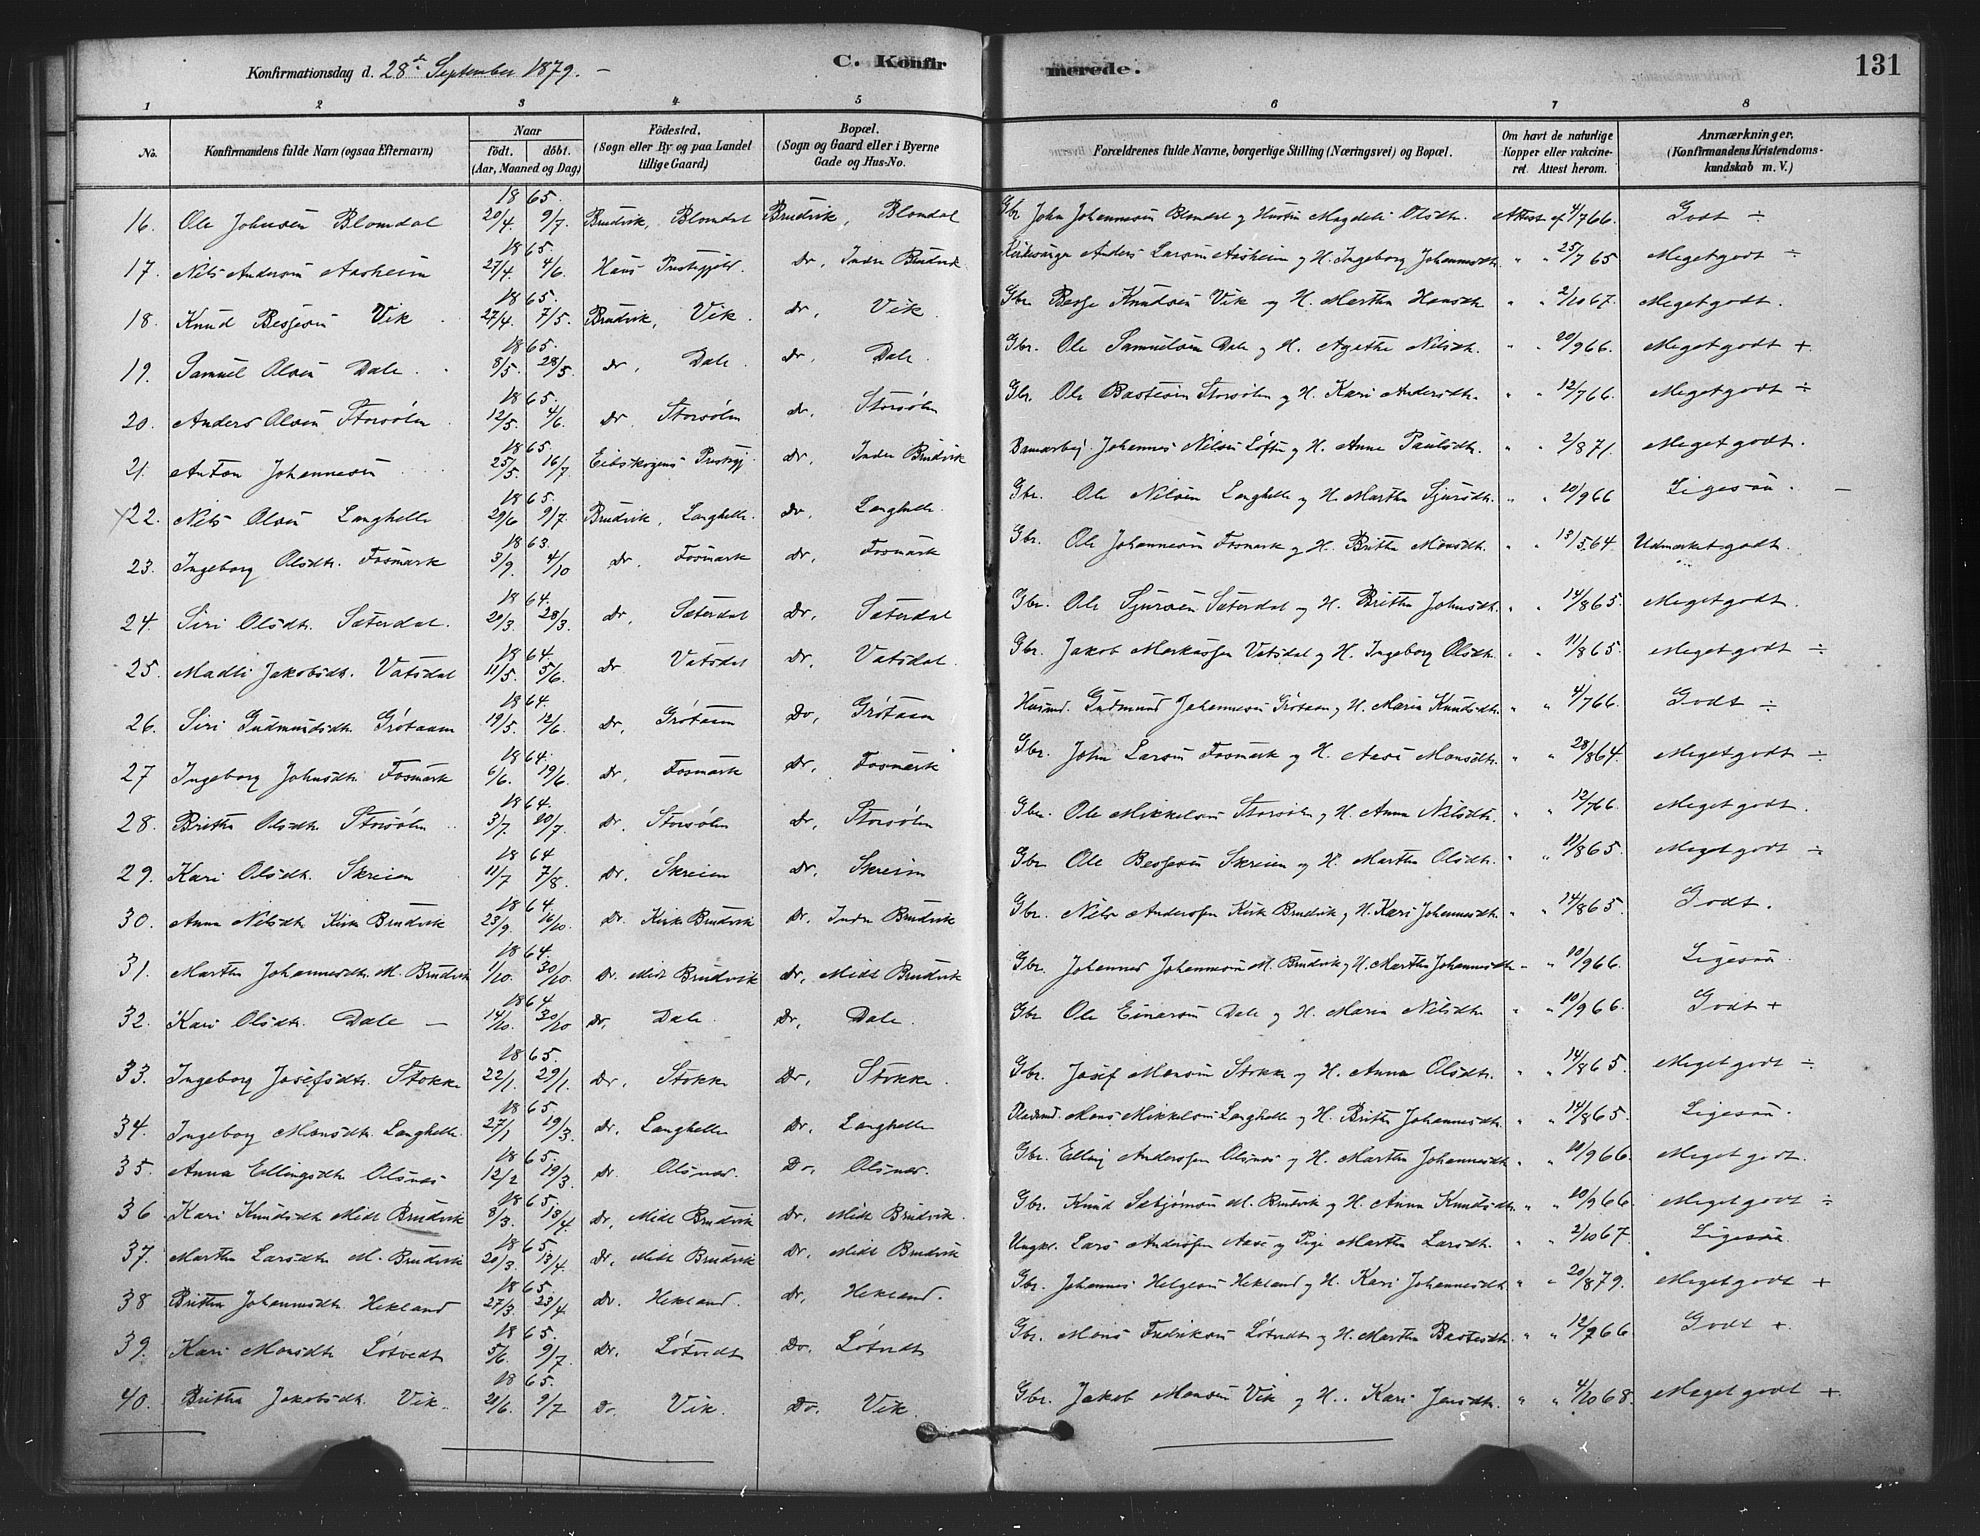 Konfirmationsdag d. 28de September 1879. –
C. Konfirmerede.
131
1 2 3 4 5 6 7 8
No.
Konfirmandens fulde Navn (ogsaa Efternavn)
Naar
födt. döbt.
(Aar, Maaned og Dag)
Födested.
(Sogn eller By og paa Landet
tillige Gaard)
Bopæl.
(Sogn og Gaard eller i Byerne
Gade og Hus-No.
Forældrenes fulde Navne, borgerlige Stilling (Næringsvei) og Bopæl.
Om havt de naturlige
Kopper eller vakcine-
ret. Attest herom.
Anmærkninger.
(Konfirmandens Kristendoms-
kundskab m. V.)
16. Ole Johnsen Blomdal 1865. 20/4. 9/7. Brudvik, Blomdal Brudvik, Blomdal Gbr. John Johannesen Blomdal og Hustru Magdeli Olsdtr. Attest af 4/7 66. Godt ÷
17. Nils Andersen Aasheim 1865. 27/4. 4/6. Haus Prestegjeld. Do, Indre Brudvik Kirkesanger Anders Larsen Aasheim og H. Ingeborg Johannesdtr. " " 25/7 65 Meget godt ÷
18. Knud Bessesen Vik 1865. 27/4. 7/5. Brudvik, Vik. do, Vik. Gbr. Besse Knudsen Vik og H. Martha Hansdtr. " " 2/10 67. Meget godt.
19. Samuel Olsen Dale. 1865. 8/5. 28/5. do, Dale. do, Dale. Gbr. Ole Samuelsen Dale og H. Agathe Nilsdtr. " " 20/9 66. Meget godt +
20. Anders Olsen Storsølen 1865. 12/5. 4/6. do, Storsølen do, Storsølen Gbr. Ole Bastesen Storsølen og H. Kari Andersdtr. " " 12/7 66. Meget godt ÷
21. Anton Johannesen 1865. 25/5. 16/7. Eidskogens Prestegj. do, Indre Brudvik Banearbej. Johannes Nilsen Løften og H. Anne Paulsdtr. " " 2/8 71. Meget godt.
22. Nils Olsen Langhelle 1865. 29/6 9/7. Brudvik, Langhelle. do, Langhelle. Gbr. Ole Nilsen Langhelle og H. Martha Sjursdtr. " " 10/9 66 Ligesaa. –
23. Ingeborg Olsdtr. Fosmark 1863. 3/9. 4/10 do, Fosmark do, Fosmark Gbr. Ole Johannesen Fosmark og H. Britha Monsdtr. " " 13/5 64. Udmerket godt.
24. Siri Olsdtr. Sæterdal. 1864. 20/3. 28/3. do, Sæterdal do, Sæterdal Gbr. Ole Sjursen Sæterdal og H. Britha Johnsdtr. " " 14/8 65. Meget godt.
25. Madli Jakobsdtr. Vatsdal 1864. 11/5. 5/6. do Vatsdal do, Vatsdal. Gbr. Jakob Markussen Vatsdal og H. Ingeborg Olsdtr. " " 11/8 65. Meget godt ÷
26. Siri Gudmundsdtr. Grötaaen 1864. 19/5. 12/6. do, Grötaaen Do, Grötaaen Husmd. Gudmund Johannesen Grötaaen og H. Maria Knudsdtr. " " 4/7 66. Godt ÷
27 Ingeborg Johnsdtr. Fosmark 1864. 6/6. 19/6. do, Fosmark do, Fosmark Gbr. John Larsen Fosmark og H. Aase Monsdtr. " " 28/8 64. Meget godt ÷
28. Britha Olsdtr Storsølen 1864. 3/7. 20/7. do, Storsølen do, Storsølen Gbr. Ole Mikkelsen Storsølen og H. Anna Nilsdtr. " " 12/7 66. Meget godt.
29. Kari Olsdtr. Skreien 1864 11/7 7/8. do, Skreien do, Skreien Gbr. Ole Bessesen Skreien og H. Martha Olsdtr. " " 12/8 65. Meget godt ÷
30. Anna Nilsdtr Kirke Brudvik 1864. 23/9. 16/10. Do. Kirke Brudvik Do. Indre Brudvik Gbr. Nils Anderssen Kirke Brudvik og H. Kari Johannesdtr. " " 14/8 65. Godt.
31. Martha Johannesdtr. M. Brudvik 1864. 1/10. 30/10. Do. Midt Brudvik do, Midt Brudvik Gbr. Johannes Johannesen M. Brudvik og H. Martha Johannesdtr " " 10/9 66. Ligesaa.
32. Kari Olsdtr. Dale – 1864. 14/10. 30/10 do, Dale. Do, Dale. Gbr Ole Einarsen Dale og H. Maria Nilsdtr. " " 10/9 66. Godt +
33. Ingeborg Josefsdtr. Stokke 1865. 22/1. 29/1. do, Stokke Do, Stokke. Gbr. Josef Monsen Stokke og H. Anna Olsdtr. " " 14/8 65. Meget godt ÷
34. Ingeborg Monsdtr. Langhelle. 1865. 27/1 19/3. do, Langhelle Do, Langhelle Pladsmd. Mons Mikkelsen Langhelle og H. Britha Johannesdtr. " " 14/8 65. Ligesaa.
35. Anna Ellingsdtr Olsnes 1865. 12/2 19/3. do, Olsnes. Do, Olsnes. Gbr. Elling Anderssen Olsnes og H. Martha Johannesdtr " " 10/9 66. Meget godt.
36 Kari Knudsdtr Midt Brudvik 1865. 8/3. 13/4. do, Midt Brudvik Do, Midt Brudvik. Gbr. Knud Sebjørnsen M. Brudvik og H. Anna Knudsdtr " " 10/9 66 Meget godt ÷
37. Martha Larsdtr M. Brudvik 1865. 20/3. 13/4. do, Midt Brudvik Do, Midt Brudvik Ungkr. Lars Anderssen Aase og Pige Martha Larsdtr. " " 2/10 67. Ligesaa
38 Britha Johannesdtr. Hekland 1865. 27/3. 23/4. do. Hekland. do, Hekland. Gbr. Johannes Helgesen Hekland og H. Kari Johannesdtr " " 20/8 79. Meget godt +
39. Kari Monsdtr Lötvedt 1865. 5/6. 9/7. do. Lötvedt Do. Lötvedt Gbr. Mons Fredriksen Lötvedt og H. Martha Bastesdtr " " 12/7 66 Godt +
40. Britha Jakobsdtr. Vik. 1865. 21/6. 9/7 Do Vik. Do. Vik. Gbr. Jakob Monsen Vik og H. Kari Jensdtr. " " 4/10 68. Meget godt +